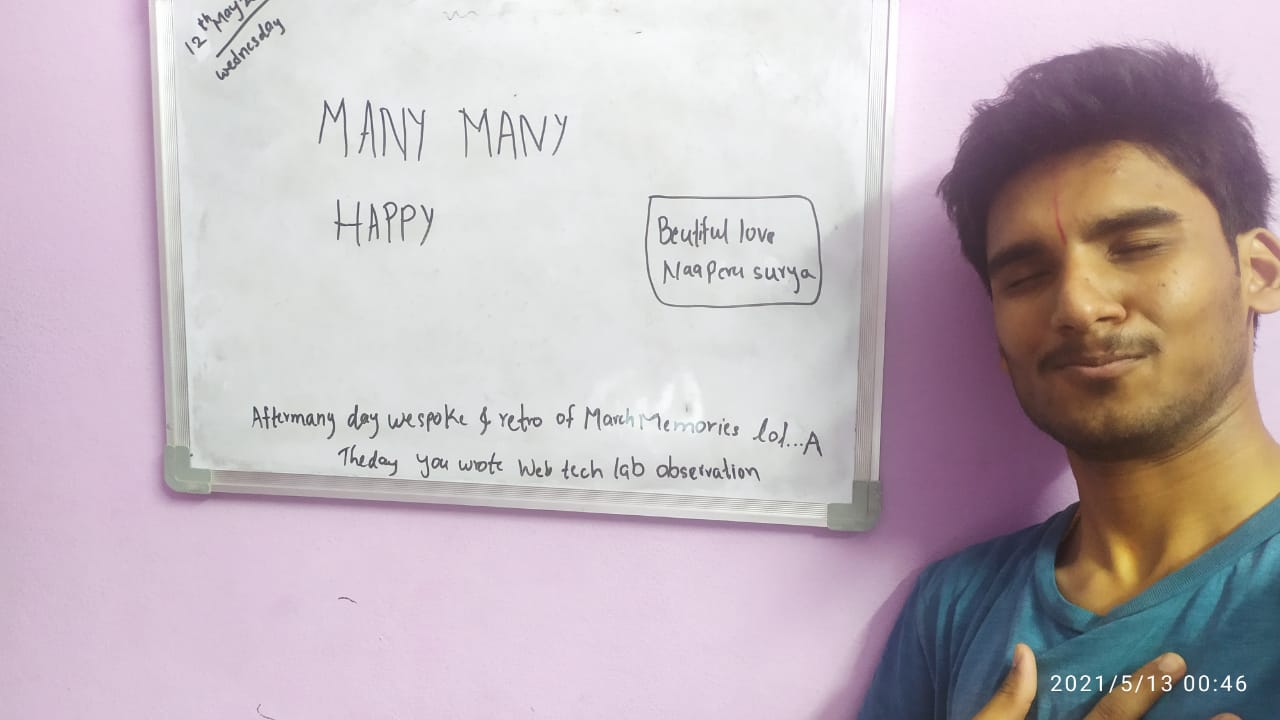 12th May
Wednesday
MANY MANY
HAPPY
Beutiful love
Naa Peru surya
Aftermany day we spoke & retro of March Memories lol...A
The day you wrote Web tech lab observation
2021/5/13 00:46